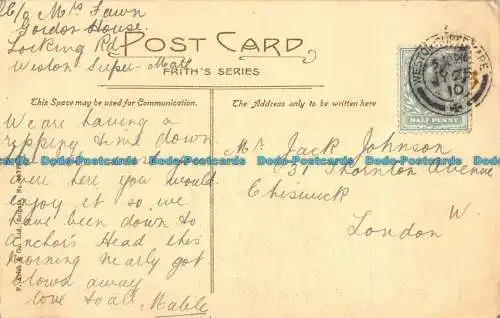 C/o Mrs Fawn
Gordon House
Locking Rd
Weston Super-Mare
POST CARD
FRITH'S SERIES
This Space may be used for Communication.
The Address only to be written here
We are having a
ripping time down
were here you would
enjoy it so we
have been down to
Anchors Head this
morning nearly got
blown away
love to all Mable
Mr Jack Johnson
31 Thornton Avenue
Chiswick
London W
HALF PENNY
WESTON-SUPER-MARE
10
Dodo-Postcards Dodo-Postcards Dodo-Postcards Dodo-Postcards